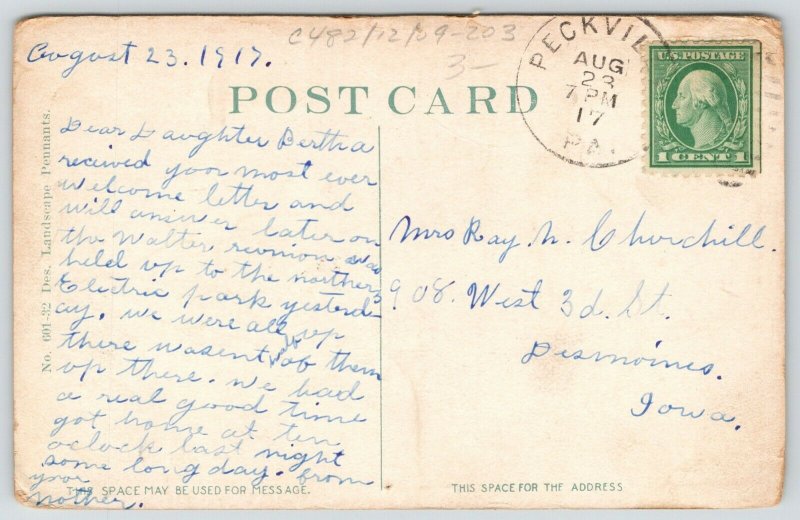 August 23. 1917.
C482/12/29-203
3-
PECKVIL
AUG
23
7 PM
17
PA.
U.S. POSTAGE
1 CENT 1
POST CARD
Dear Daughter Bertha
received your most ever
welcome letter and
will answer later on
the Walter reunion was
held up to the northern
Electric park yesterd-
ay. we were all up
there wasent of them
up there. we had
a real good time
got home at ten
oclock last night
some long day. from
your
mother.
Mrs Ray. N. Churchill.
908. West 3d. St.
Desmoines.
Iowa.
No. 601-32 Des. Landscape Pennants.
THIS SPACE MAY BE USED FOR MESSAGE.
THIS SPACE FOR THE ADDRESS